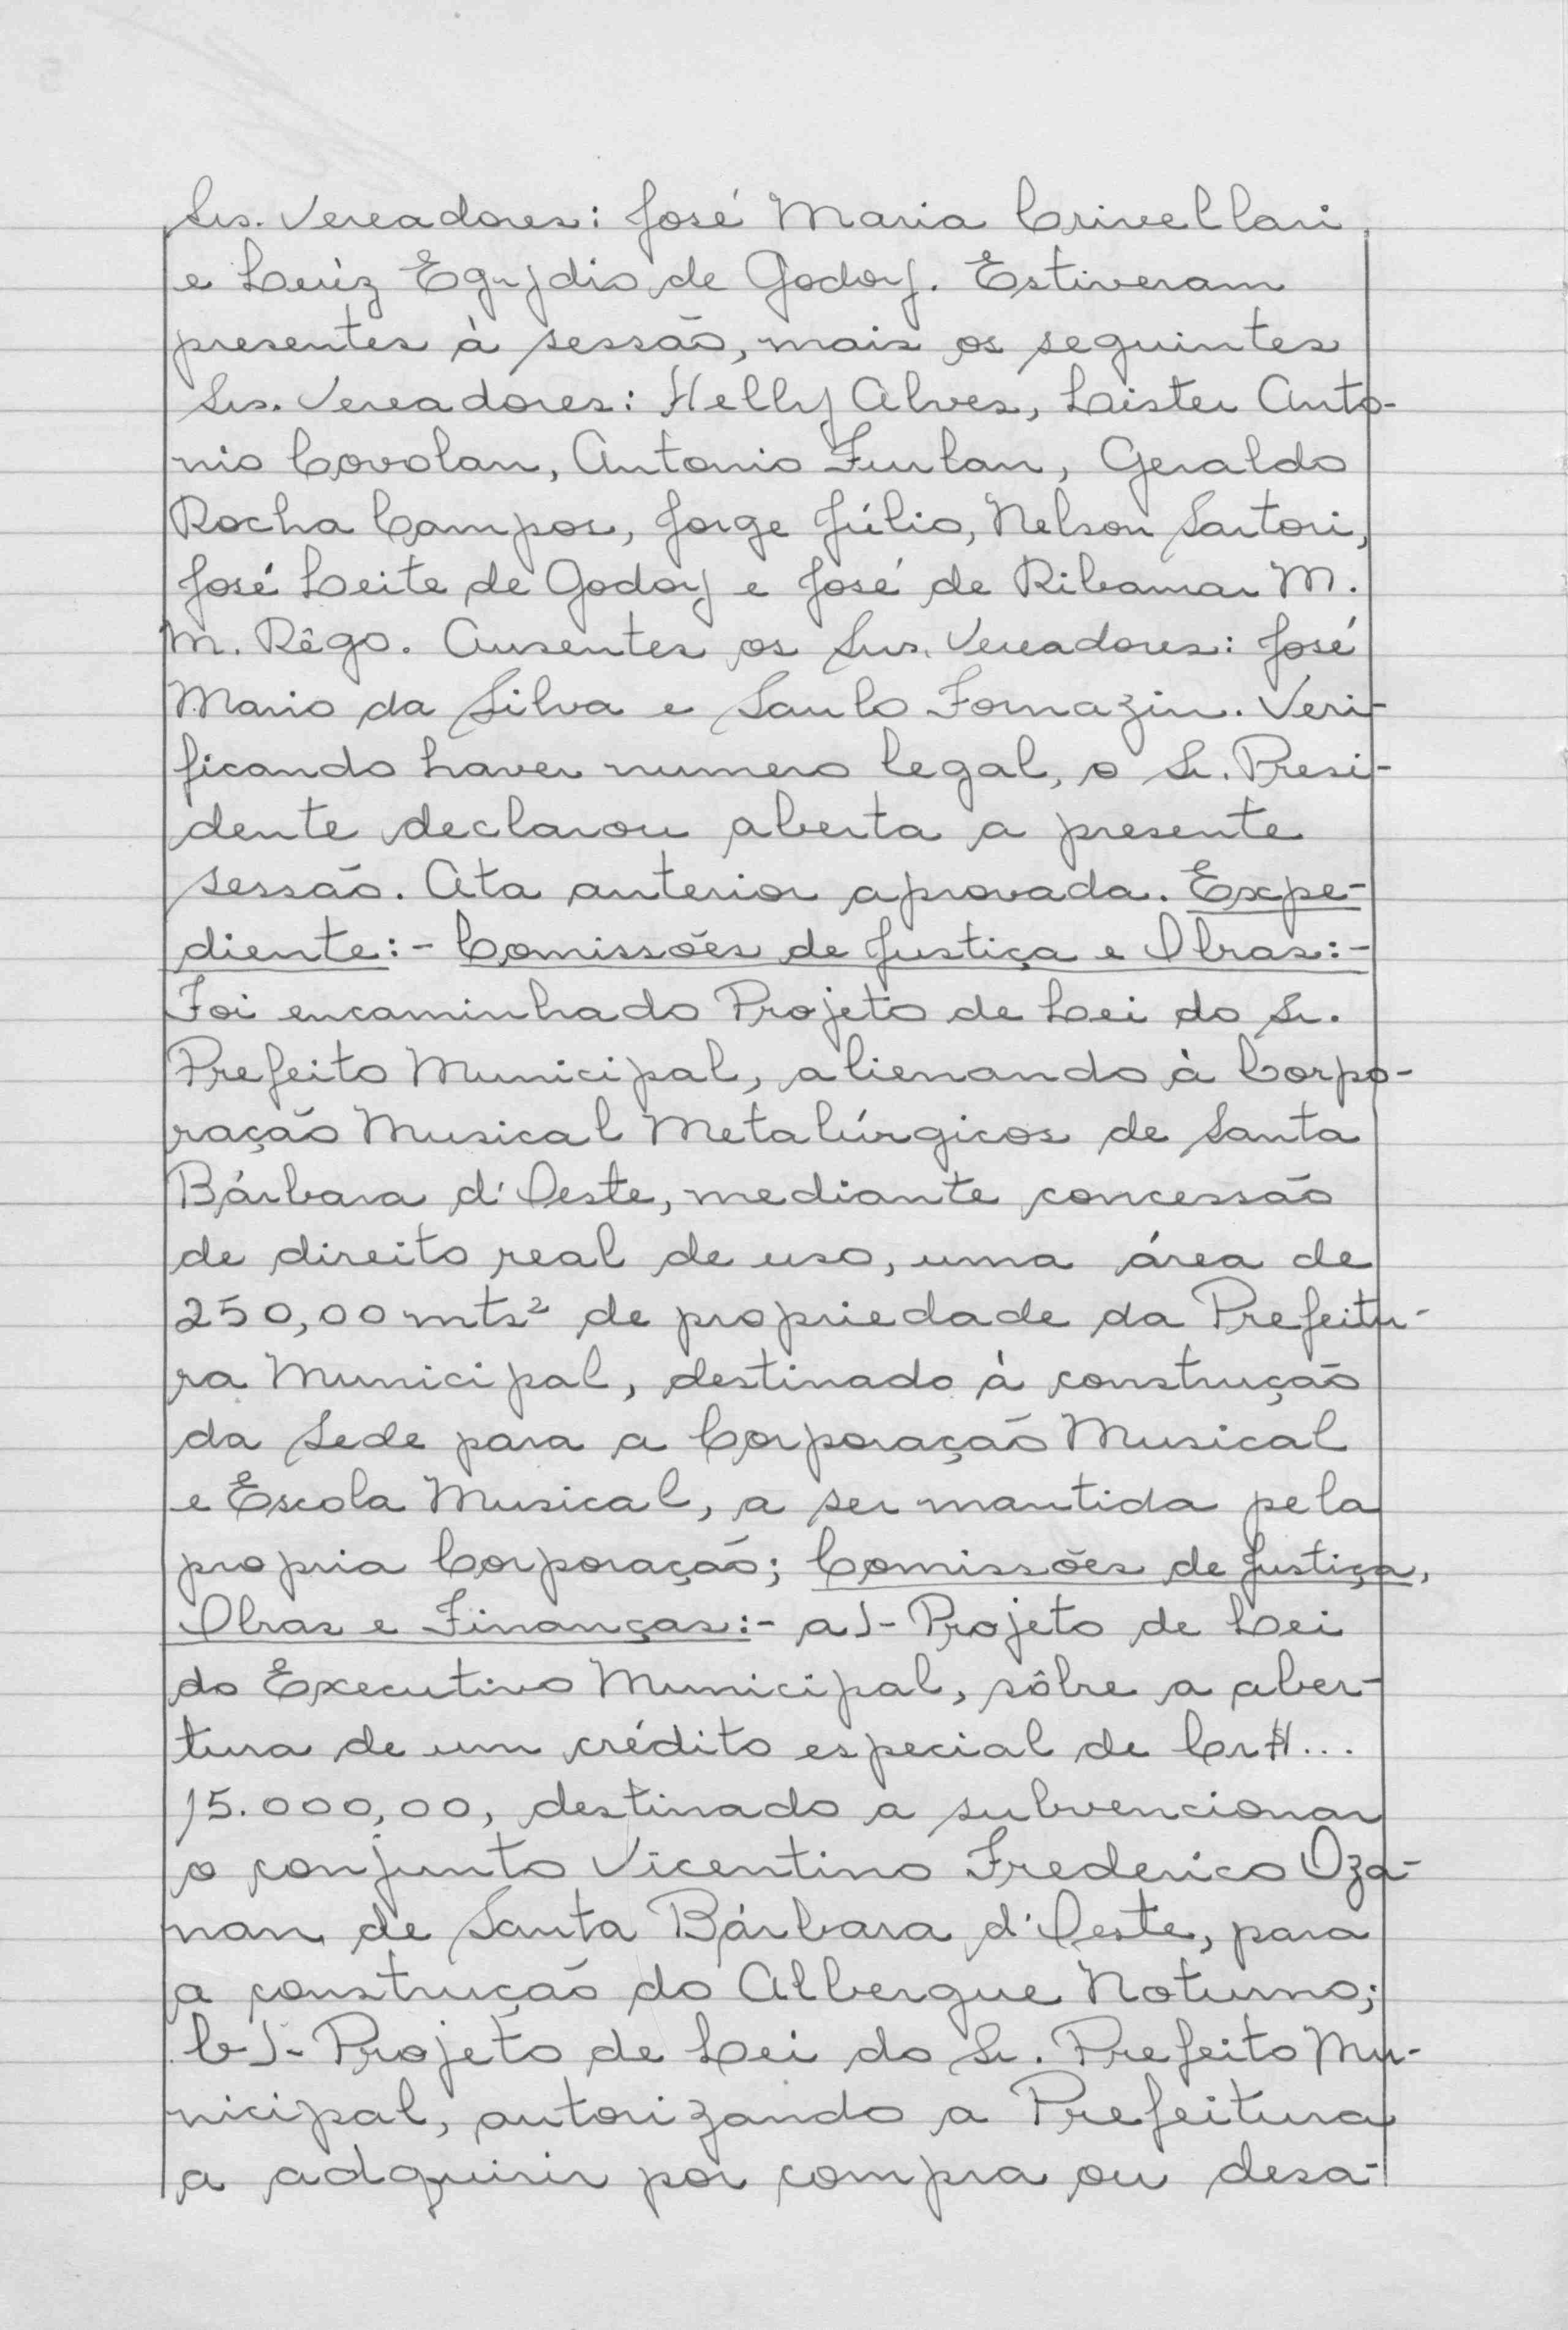 Srs. Vereadores: José Maria Crivellari
e Luiz Egydio de Godoy. Estiveram
presentes à sessão, mais os seguintes
Srs. Vereadores: Helly Alves, Lister Anto-
nio Covolan, Antonio Furlan, Geraldo
Rocha Campos, Jorge Júlio, Nelson Sartori,
José Leite de Godoy e José de Ribamar M.
M. Rêgo. Ausentes os Srs. Vereadores: José
Mario da Silva e Saulo Fornazin. Veri-
ficando haver numero legal, o Sr. Presi-
dente declarou aberta a presente
sessão. Ata anterior aprovada. Expe-
diente:- Comissões de Justiça e Obras:-
Foi encaminhado Projeto de Lei do Sr.
Prefeito Municipal, alienando à Corpo-
ração Musical Metalúrgicos de Santa
Bárbara d'Oeste, mediante concessão
de direito real de uso, uma área de
250,00 mts² de propriedade da Prefeitu-
ra Municipal, destinado à construção
da Sede para a Corporação Musical
e Escola Musical, a ser mantida pela
propria Corporação; Comissões de Justiça,
Obras e Finanças:- a)- Projeto de Lei
do Executivo Municipal, sôbre a aber-
tura de um crédito especial de Cr$...
15.000,00, destinado a subvencionar
o conjunto Vicentino Frederico Oza-
nan de Santa Bárbara d'Oeste, para
a construção do Albergue Noturno;
b)- Projeto de Lei do Sr. Prefeito Mu-
nicipal, autorizando a Prefeitura
a adquirir por compra ou desa-